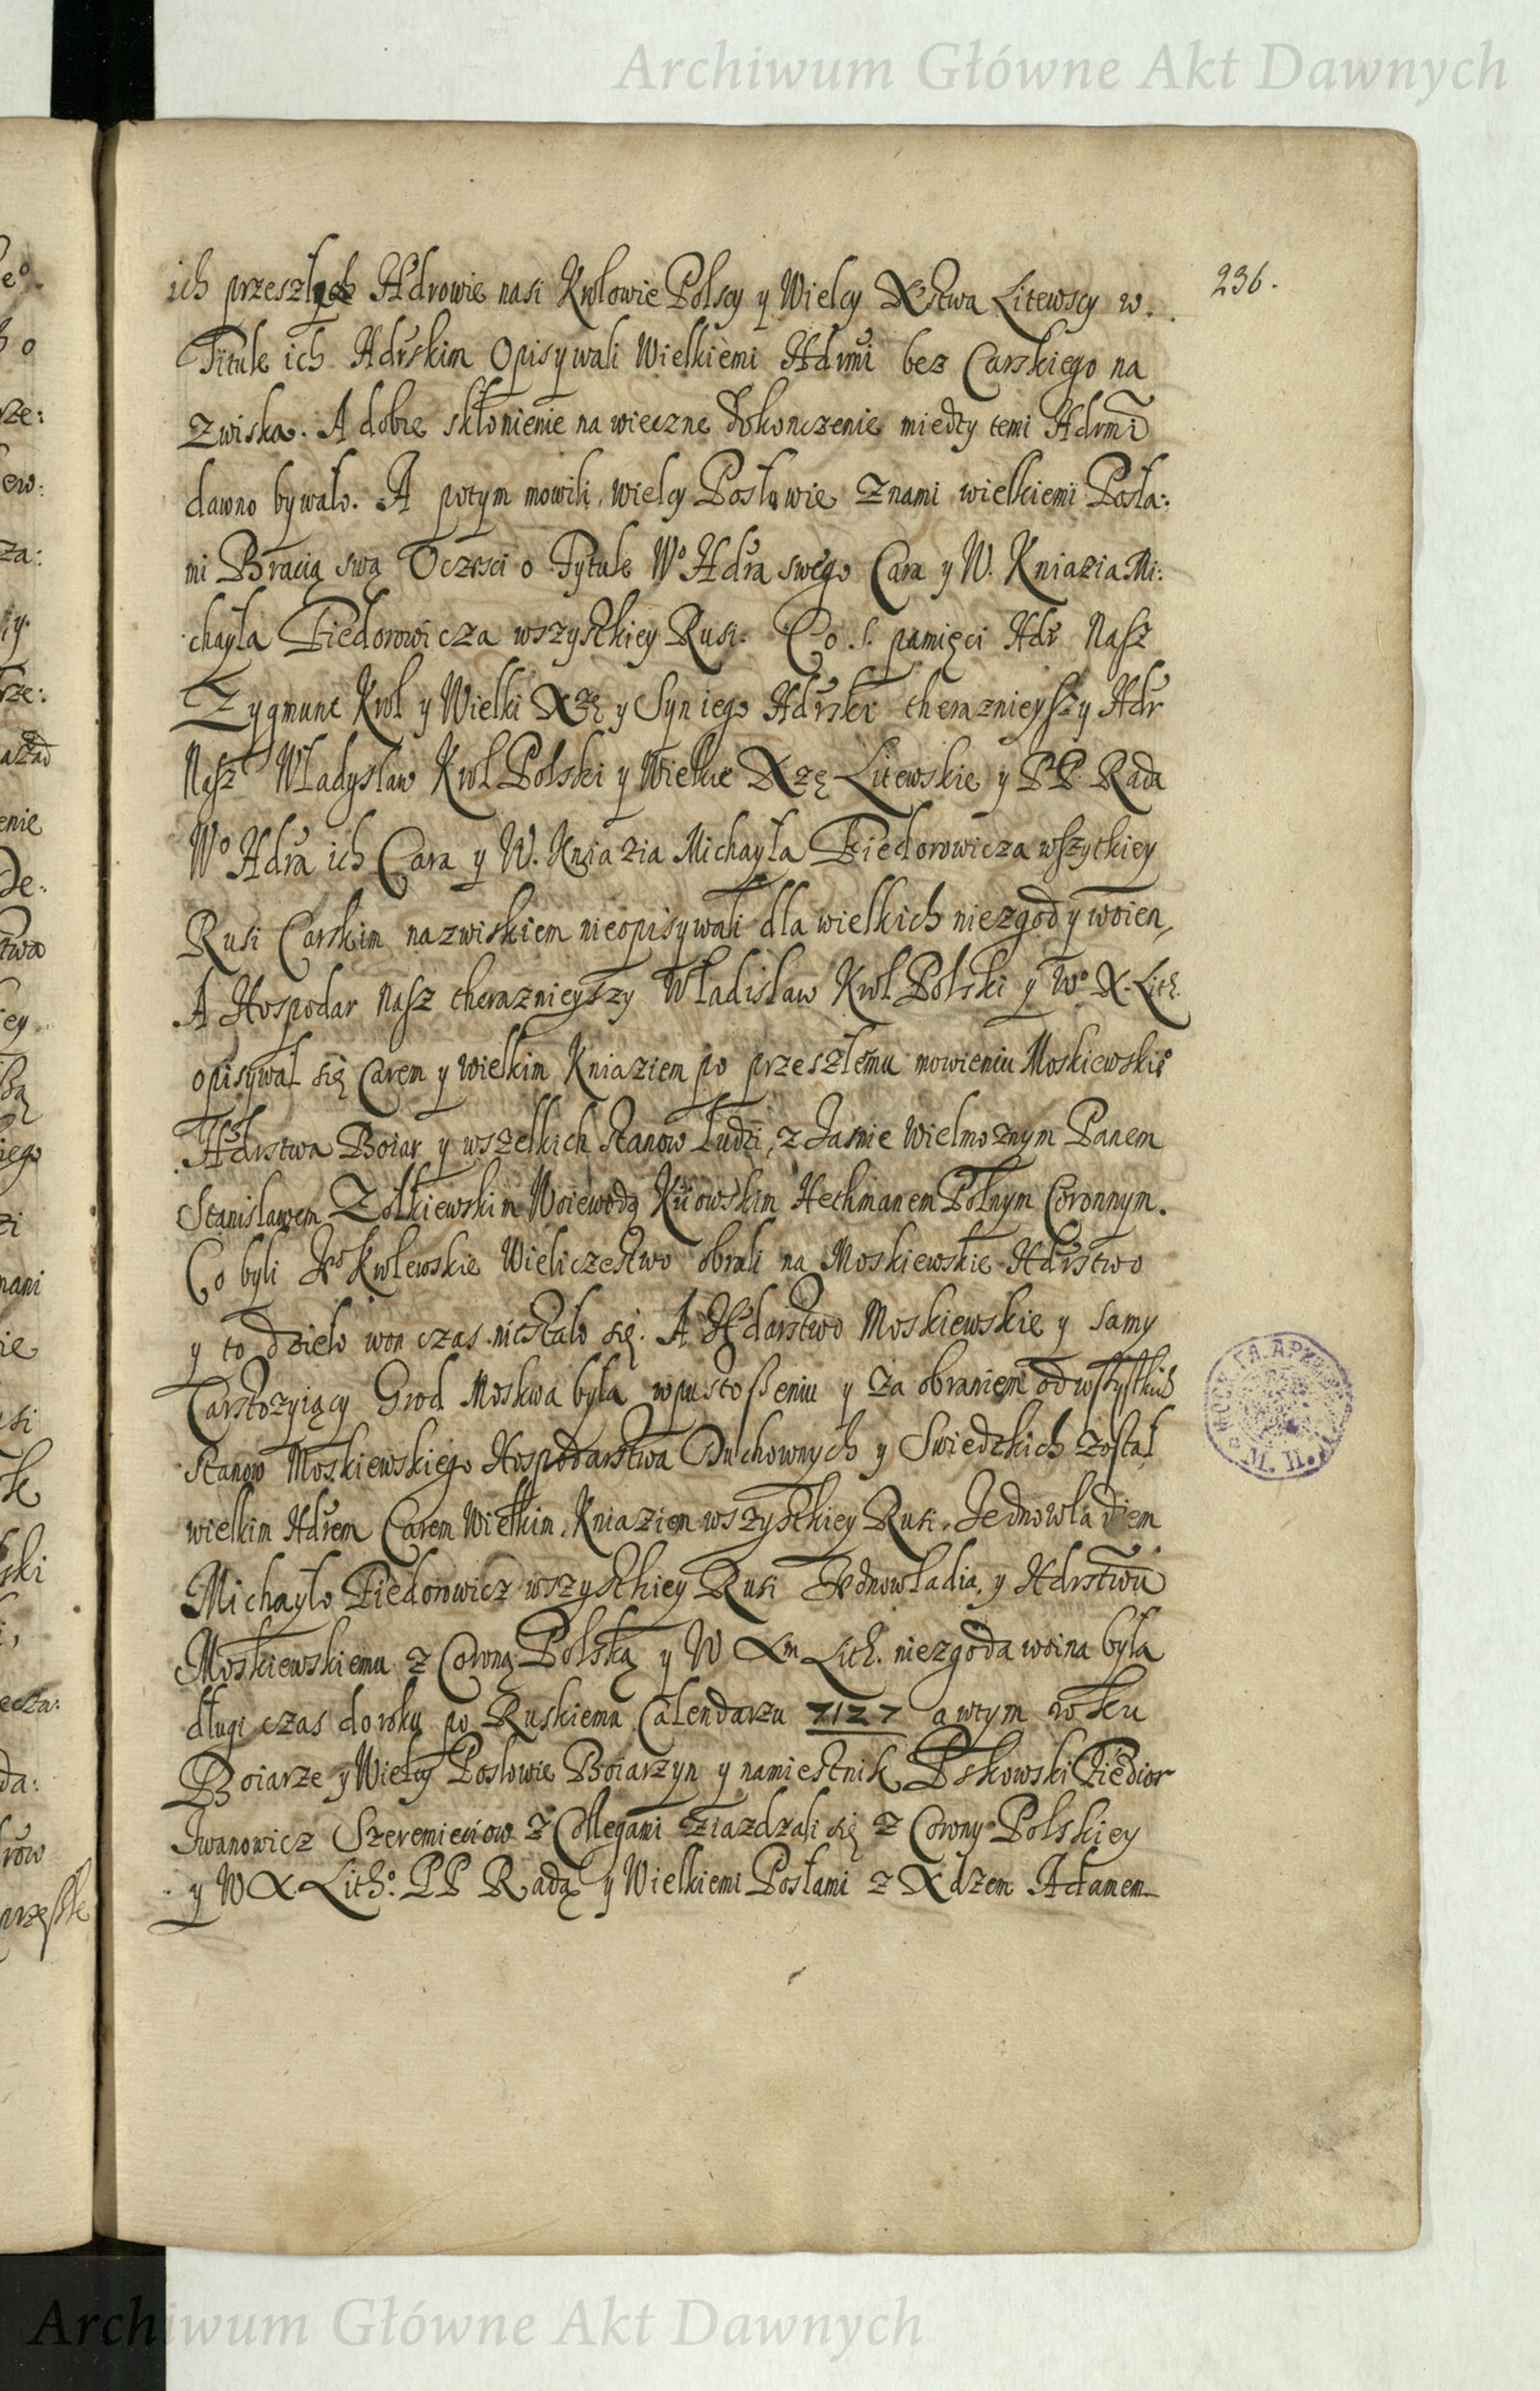 Archiwum Główne Akt Dawnych
236.
ich przeszłych Hdrowie nasi Krolowie Polscy y Wielcy Xstwa Litewscy w.
Titule ich Hdrskim Opisywali Wielkiemi Hdrmi bez Carskiego na
zwiska. A dobre skłonienie na wieczne dokonczenie miedzy temi Hdrmi
dawno bywało. A potym mowili wielcy Posłowie z nami wielkiemi Posła:
mi Bracią swą Oczesci o Tytule Wº Hdra swego Cara y W. Kniazia Mi:
chayła Fiedorowicza wszystkiey Rusi. Co S. pamięci Hdr Nasz
Zygmunt Krol y Wielki Xzę y Syn iego Hdrski theraznieyszy Hdr
Nasz Władysław Krol Polski y Wielkie Xzę Litewskie y PP. Rada
Wº Hdra ich Cara y W. Kniazia Michayła Fiedorowicza wszytkiey
Rusi Carskim nazwiskiem nieopisywali dla wielkich niezgod y woien,
A Hospodar Nasz theraznieyszy Władisław Krol Polski y Wº X. Lith.
opisywał się Carem y wielkim Kniaziem po przeszłemu mowieniu Moskiewskiº
Hdrstwa Boiar y wszelkich stanow Ludzi, z Jasnie Wielmoznym Panem
Stanisławem Zołkiewskim Woiewodą Kiiowskim Hethmanem Polnym Coronnym.
Co byli Jº Krolewskie Wieliczestwo obrali na Moskiewskie Hdrstwo
y to dzieło won czas niestało się. A Hdarstwo Moskiewskie y samy
Carstożyiący Grod Moskwa była wpustoszeniu y Za obraniem od wszystkich
stanow Moskiewskiego Hospodarstwa Duchownych y Swiedzkich został
wielkim Hdrem Carem Wielkim Kniaziem wszystkiey Rusi, Jednowładiem
Michayło Fiedorowicz wszystkiey Rusi Jednowładia, y Hdrstwu
Moskiewskiemu z Coroną Polską y W Xm Lith. niezgoda woina była
długi czas do roku po Ruskiemu Calendarzu 7127 a wtym roku
Boiarze y Wielcy Posłowie Boiarzyn y namiestnik Pskowski Fiedior
Iwanowicz Szeremieciow z Collegami ziazdzali się z Corony Polskiey
y W X Lithº. PP Radą y Wielkiemi Posłami z Xdzem Adamem
Archiwum Główne Akt Dawnych